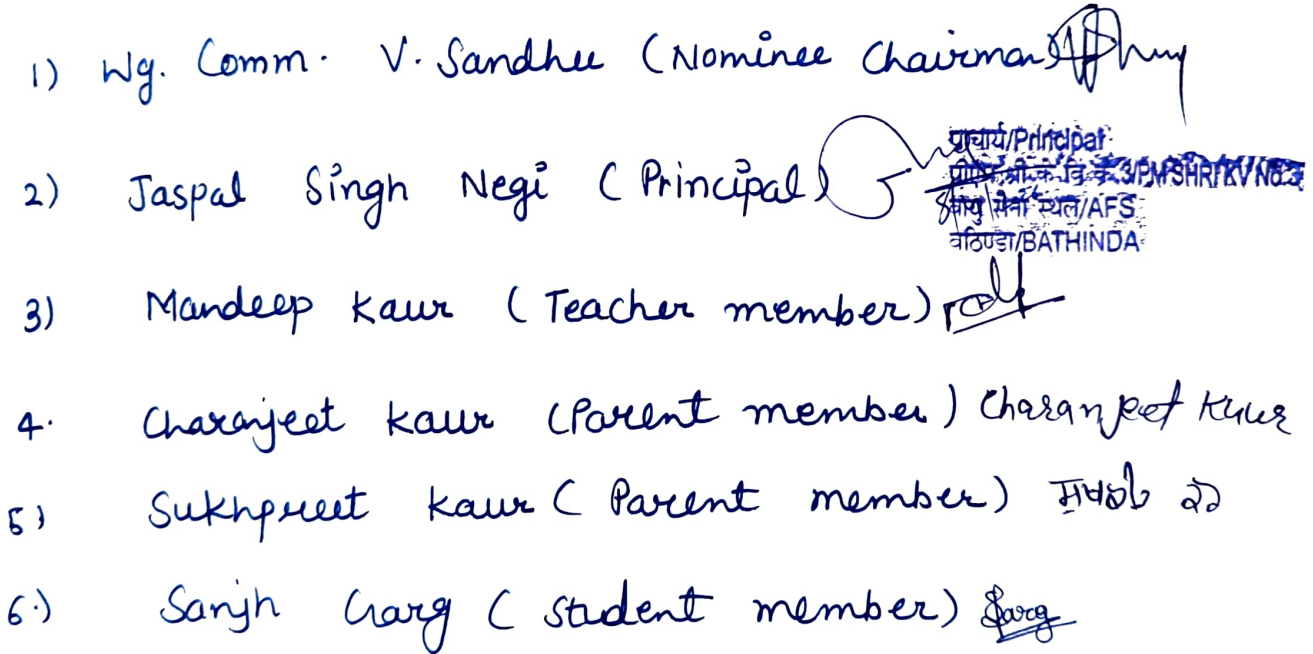 1) Wg. Comm. V. Sandhu (Nominee Chairman)
2) Jaspal Singh Negi (Principal)
प्राचार्य/Principal
पीएम श्री के. वि. क्र. 3/PM SHRI KV No.3
वायु सेना स्थल/AFS
बठिण्डा/BATHINDA
3) Mandeep Kaur (Teacher member)
4. Charanjeet Kaur (Parent member) Charanjeet Kaur
5) Sukhpreet Kaur (Parent member)
6.) Sanjh Garg (Student member) Garg